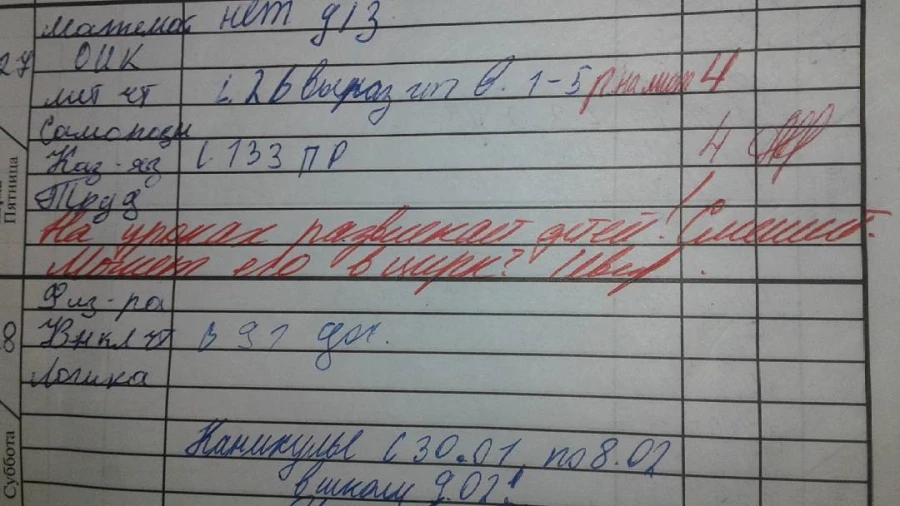 математ нет д/з
27 ОИК
лит чт с. 26 выраз чт в. 1-5 4
Самопозн
Каз-яз с 133 ПР 4
Пятница
Труд
На уроках развлекает детей! Смешит.
Может его в цирк?
Физ-ра
8 Внкл чт с 91 дох.
Логика
Суббота
Каникулы с 30.01 по 8.02
в школу 9.02!